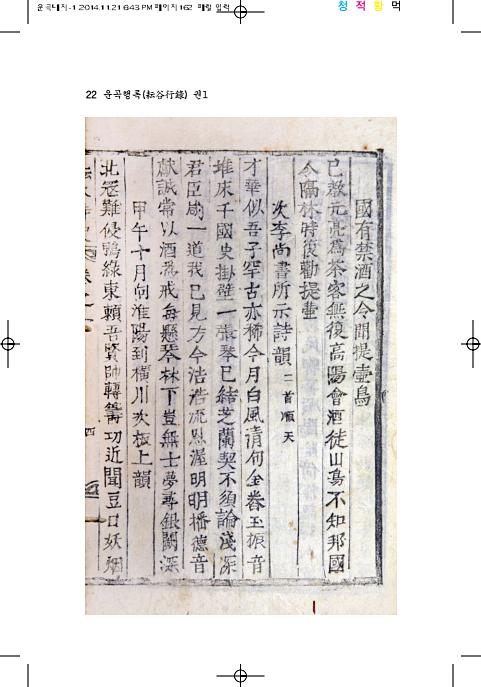 운곡내지-1 2014.11.21 6:43 PM 페이지162 매킬 일력
청 적 황 먹
22 운곡행록(耘谷行錄) 권1
國有禁酒之令聞提壺鳥
已敎元亮爲茶客無復高陽會酒徒山鳥不知邦國
令隔林時復勸提壺
次李尙書所示詩韻 二首順天
才華似吾子罕古亦稀今月白風淸句金聲玉振音
堆床千國史掛壁一張琴已結芝蘭契不須論淺深
君臣咸一道我已見方今浩浩流恩渥明明播德音
獻誠常以酒爲戒每懸琴林下豈無士夢尋銀闕深
甲午十月向淮陽到橫川次板上韻
北寇難侵鴨綠東賴吾賢帥轉籌功近聞豆口妖烟
四